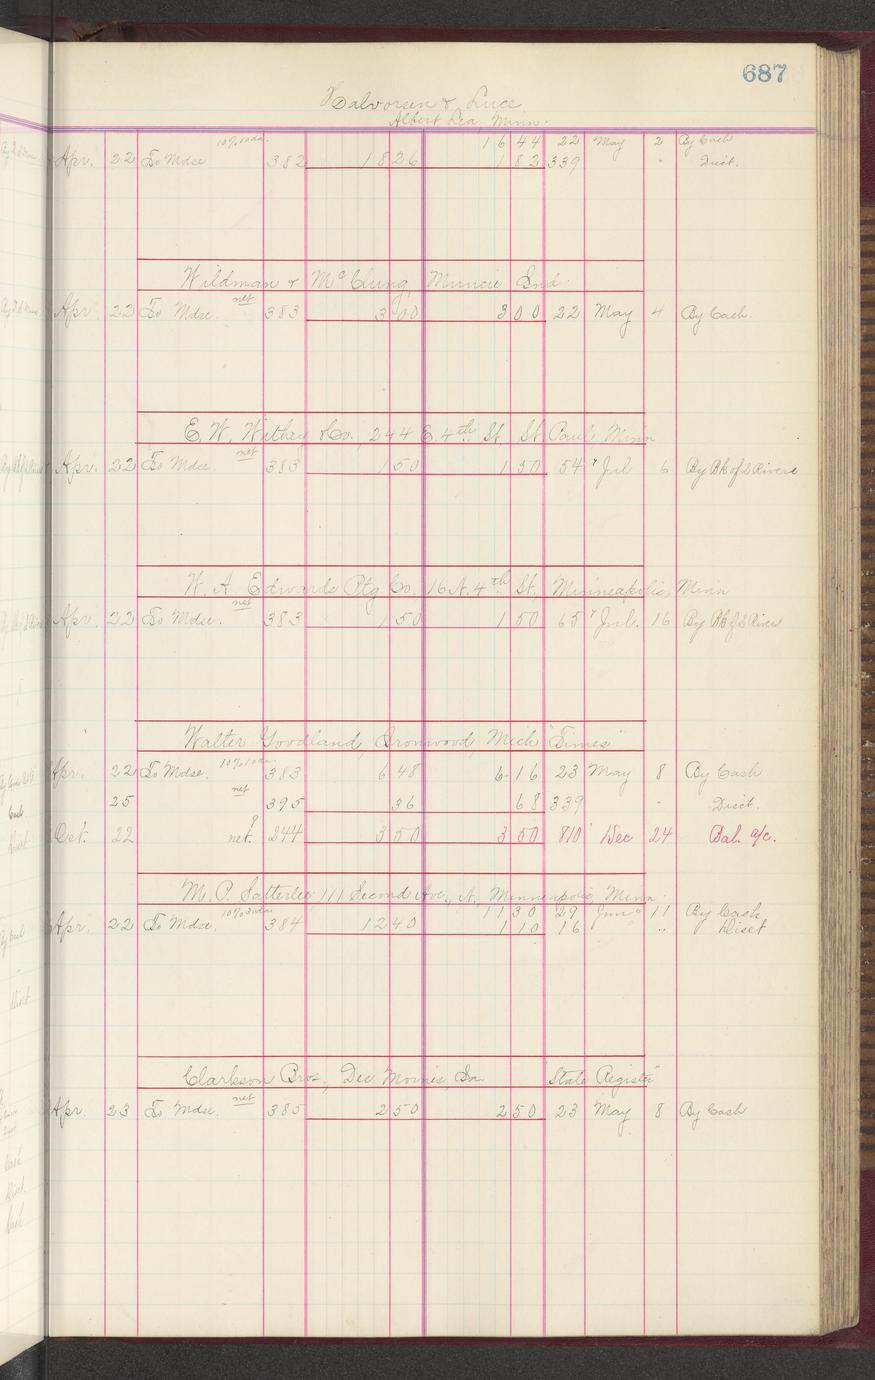 687
Halvorsen & Luce
Albert Lea Minn.
10% 10 da. 16 44 22 May 2 By Cash
Apr. 22 To Mdse 382 18 26 1 82 339 " Disct.
Wildman & McClung, Muncie Ind.
Apr. 22 To Mdse. net 383 3 00 3 00 22 May 4 By Cash.
E. W. Withey & Co., 244 E. 4th St. St. Paul Minn
Apr. 22 To Mdse. net 383 1 50 1 50 54 Jul 6 By Bk of 2 Rivers
W. A. Edwards Ptg Co. 16 N. 4th St. Minneapolis, Minn
Apr. 22 To Mdse. net 383 1 50 1 50 65 Jul. 16 By Bk of 2 Rivers
Walter Goodland, Ironwood, Mich "Times"
Apr. 22 To Mdse. 10% 10 da. 383 6 48 6 16 23 May 8 By Cash
25 net 395 36 68 339 " Disct.
Oct. 22 net. 244 3 50 3 50 810 Dec 24 Bal. a/c.
M. P. Satterlee 111 Second Ave., N., Minneapolis, Minn.
10% 30 da 11 30 29 June 11 By Cash
Apr. 22 To Mdse. 384 12 40 1 10 16 " Disct
Clarkson Bros., Des Moines Ia. "State Register"
Apr. 23 To Mdse. net 385 2 50 2 50 23 May 8 By Cash